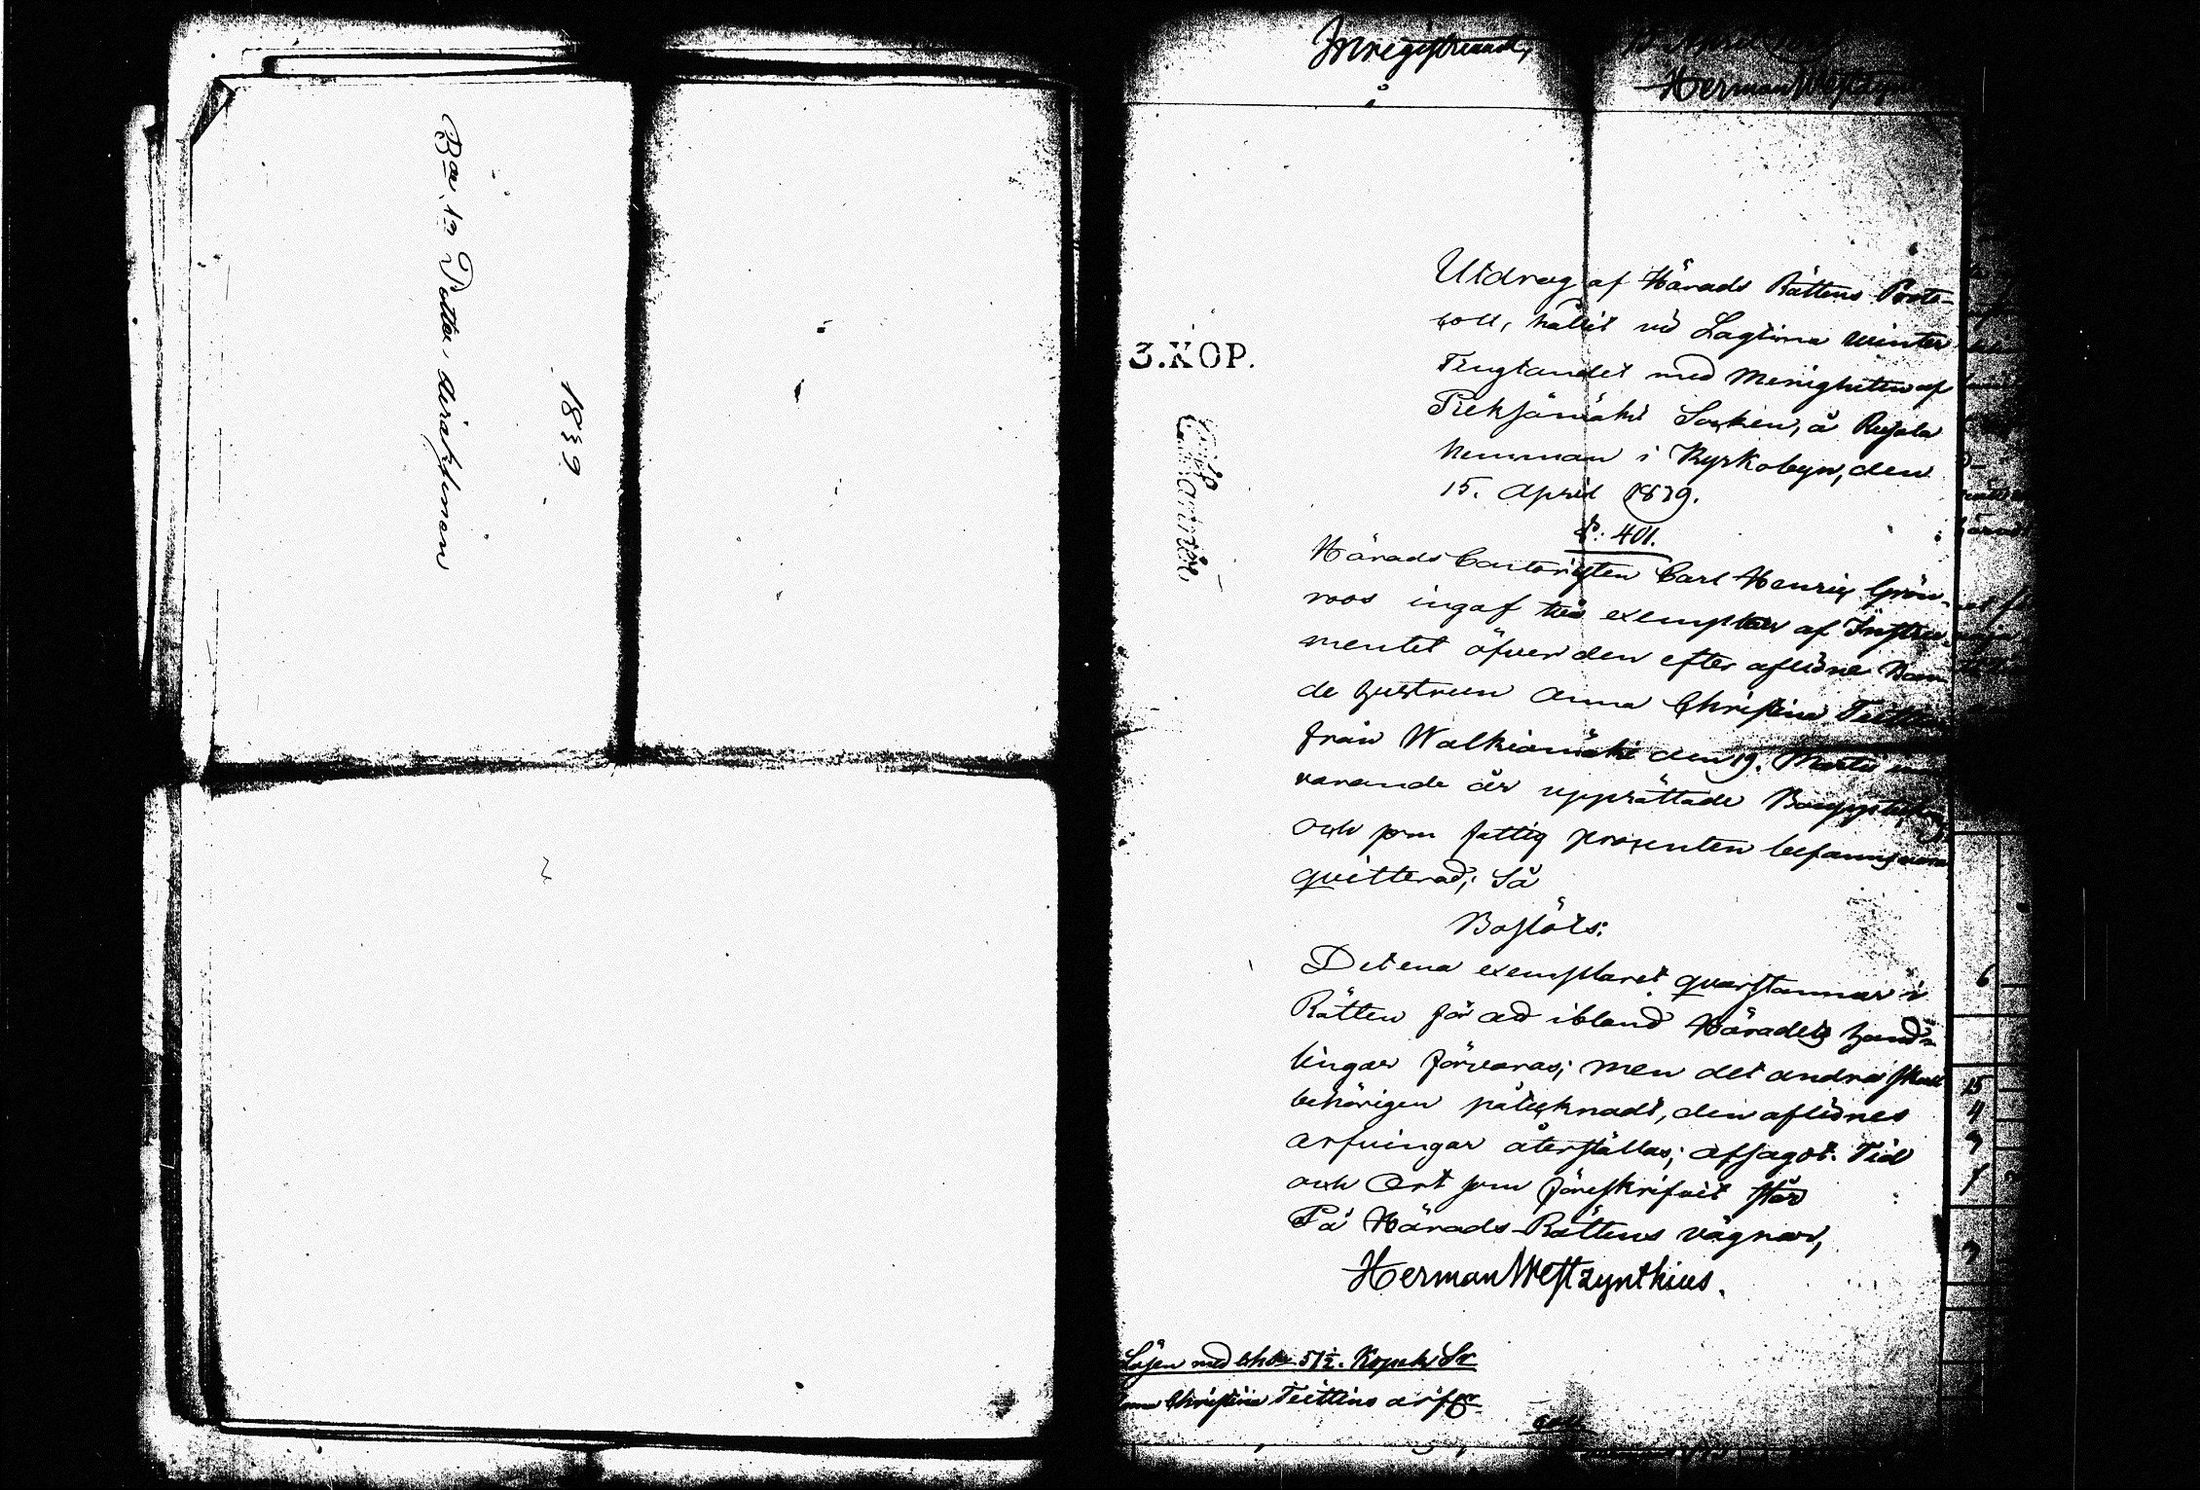 1839
Inregistreradt,
15 April
Herman Westzynthius
3. KOP.
Utdrag af Härads Rättens Proto-
coll, hållit vid Lagtima Winter
Tingtandet med Menigheten af
Pieksämäki Socken, å Rujala
Hemman i Kyrkobyn, den
15. April 1839.
§. 401.
Härads Cantoristen Carl Henric Grön-
roos ingaf två exemplar af Instru-
mentet öfver den efter aflidne Bon-
de hustrun Anna Christina Teittin
från Walkiamäki den 19. Martii
varande år upprättade Bouppteckning
och som fattig procenten befanns vara
quitterad; Så
Beslöts:
Det ena exemplaret qvarstannar i
Rätten för ad ibland Häradets hand-
lingar förvaras; men det andra skall
behörigen påtecknadt, den aflidnes
arfvingar återställas; afsagdt. Tid
och Ort som föreskrifvit står
På Härads Rättens vägnar,
Herman Westzynthius.
Lösen med 57½. Kopek Sr
Christina Teittins arfr